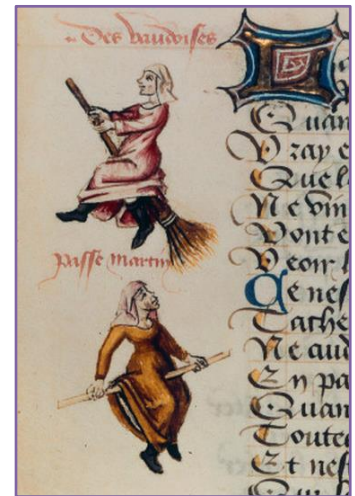 Des vaudoises
passe martin
Quan
Vray e
Que l
Ne vin
Vont e
Veoir l
Ce nes
Tache
Ne aud
En pa
Quan
Toute
Et nes